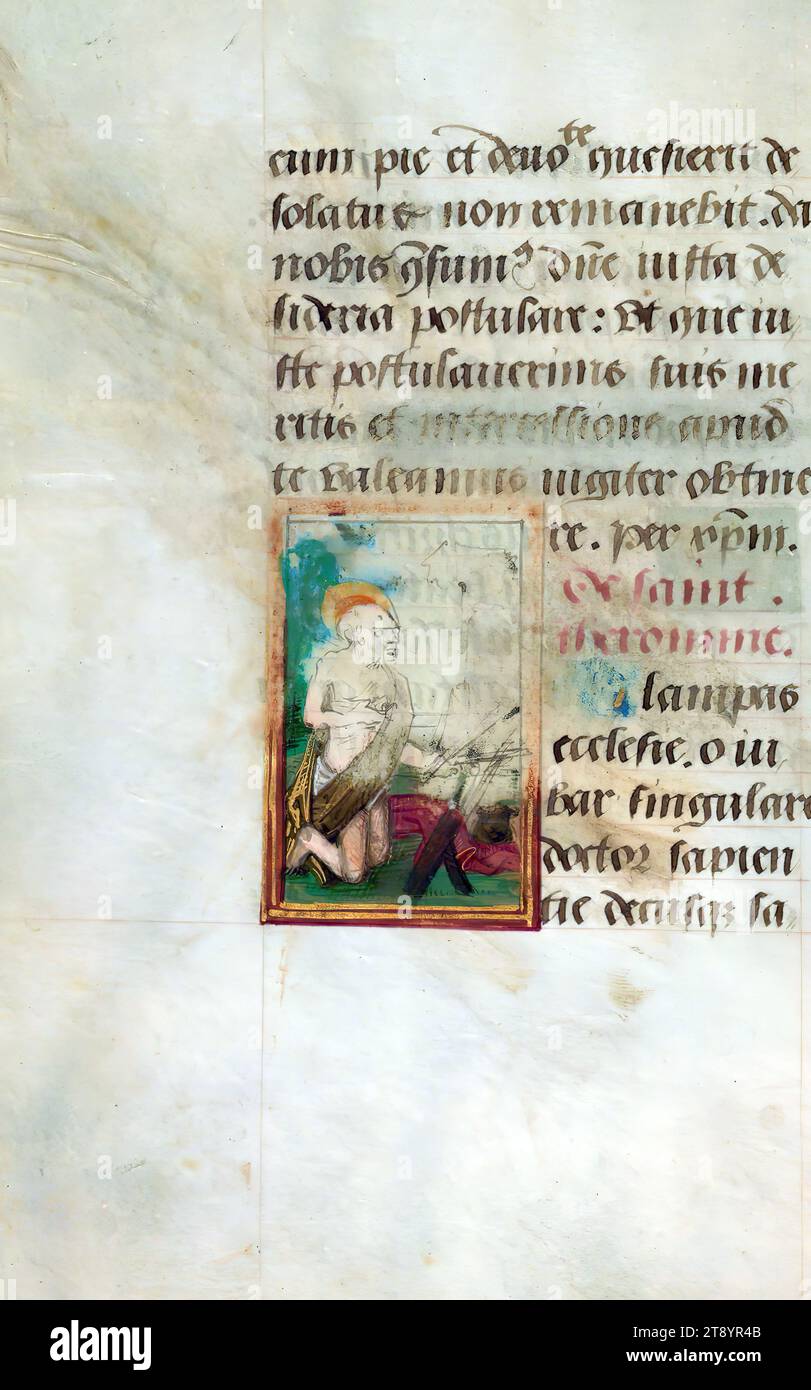 te
eum pie et deuo quesierit de
solatus non remanebit. da
nobis q̄sumꝰ dn̄e iusta de
sideria postulare: et que iu
ste postulauerimus suis me
ritis et intercessione apud
te valeamus iugiter obtine
re. per xp̄m.
de saint .
iheronime.
lampas
ecclesie. o iu
bar singulare
doctor sapien
tie decusqꝫ sa
alamy
alamy
Image ID: 2T8YR4B
www.alamy.com